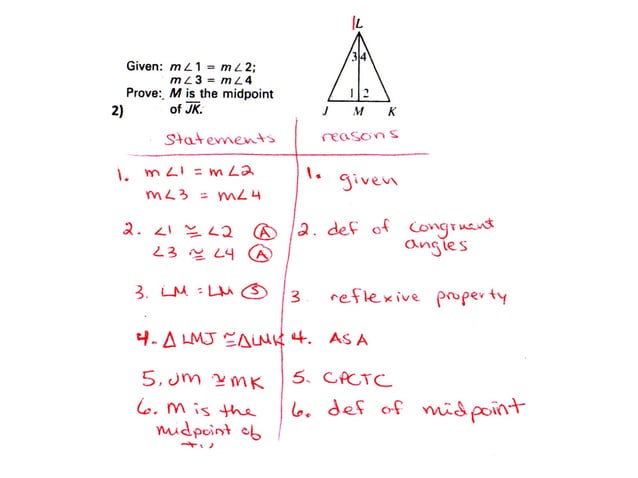 L
Given: m∠1 = m∠2;
m∠3 = m∠4
Prove: M is the midpoint
2) of JK.
3 4
1 2
J M K
Statements reasons
1. m∠1 = m∠2 1. given
m∠3 = m∠4
2. ∠1 ≅ ∠2 (A) 2. def of congruent
∠3 ≅ ∠4 (A) angles
3. LM = LM (S) 3. reflexive property
4. △LMJ ≅ △LMK 4. ASA
5. JM ≅ MK 5. CPCTC
6. M is the 6. def of midpoint
midpoint of